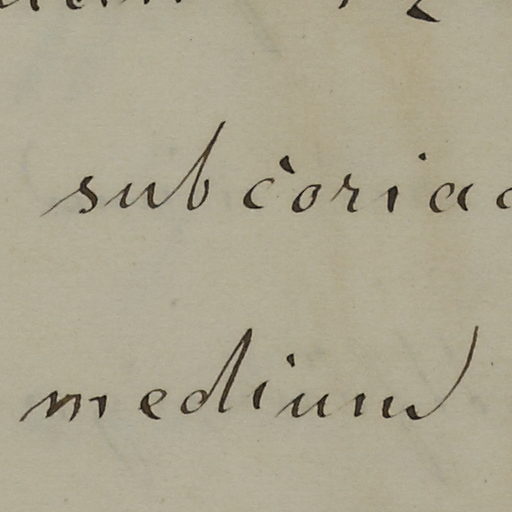 subcoriac
medium